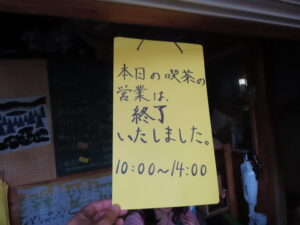 本日の喫茶の
営業は、
終了
いたしました。
10:00～14:00